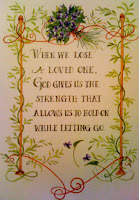 When we lose
a loved one,
God gives us the
strength that
allows us to hold on
while letting go